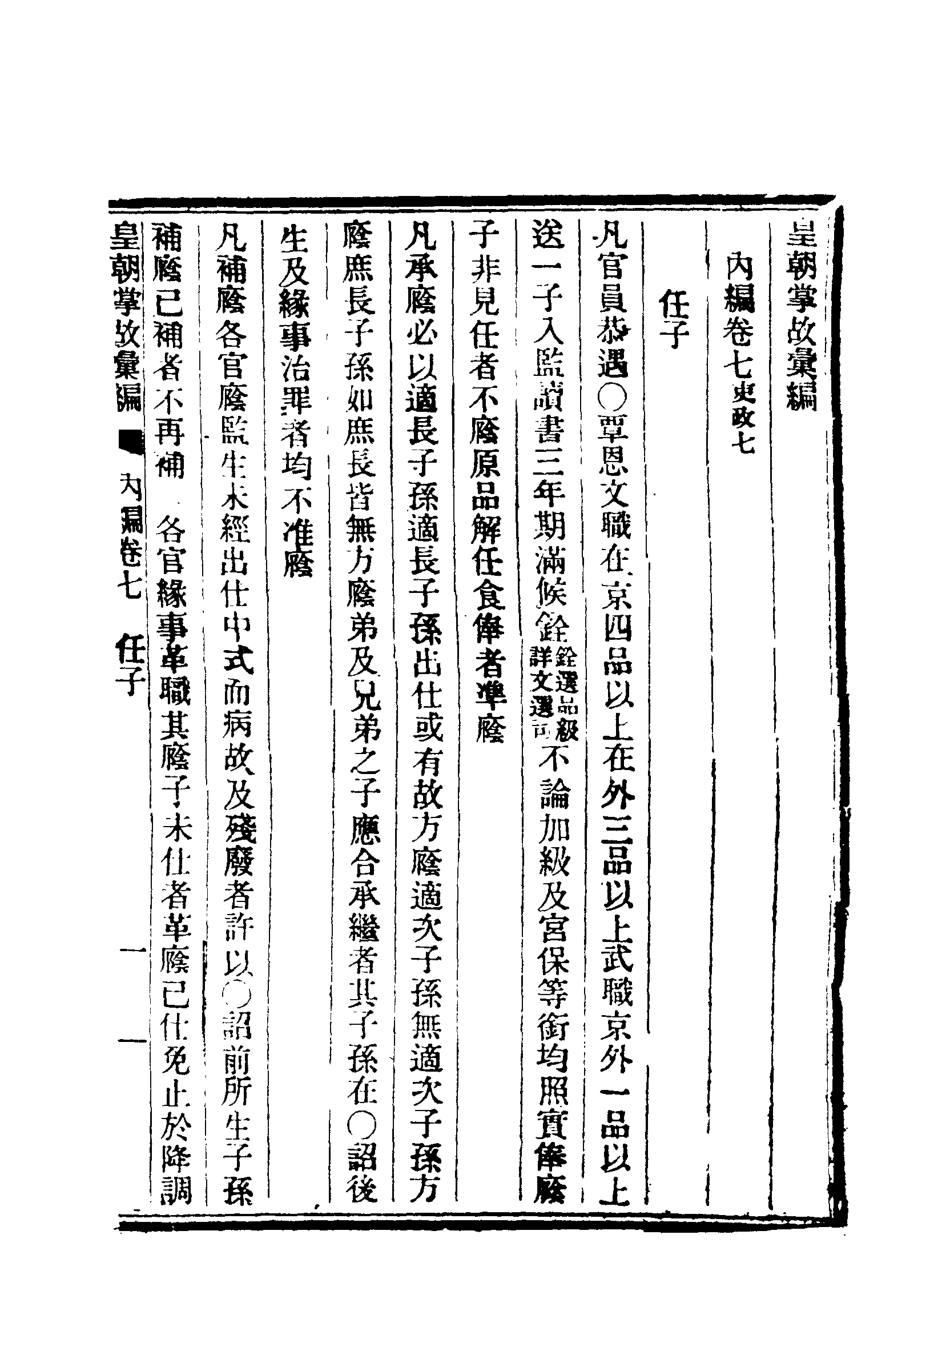 皇朝掌故彙編
內編卷七吏政七
任子
凡官員恭遇〇覃恩文職在京四品以上在外三品以上武職京外一品以上
送一子入監讀書三年期滿候銓銓選品級詳文選司不論加級及宮保等銜均照實俸廕
子非見任者不廕原品解任食俸者準廕
凡承廕必以適長子孫適長子孫出仕或有故方廕適次子孫無適次子孫方
廕庶長子孫如庶長皆無方廕弟及兄弟之子應合承繼者其子孫在〇詔後
生及緣事治罪者均不准廕
凡補廕各官廕監生未經出仕中式而病故及殘廢者許以〇詔前所生子孫
補廕已補者不再補 各官緣事革職其廕子未仕者革廕已仕免止於降調
皇朝掌故彙編 內編卷七 任子 一 一